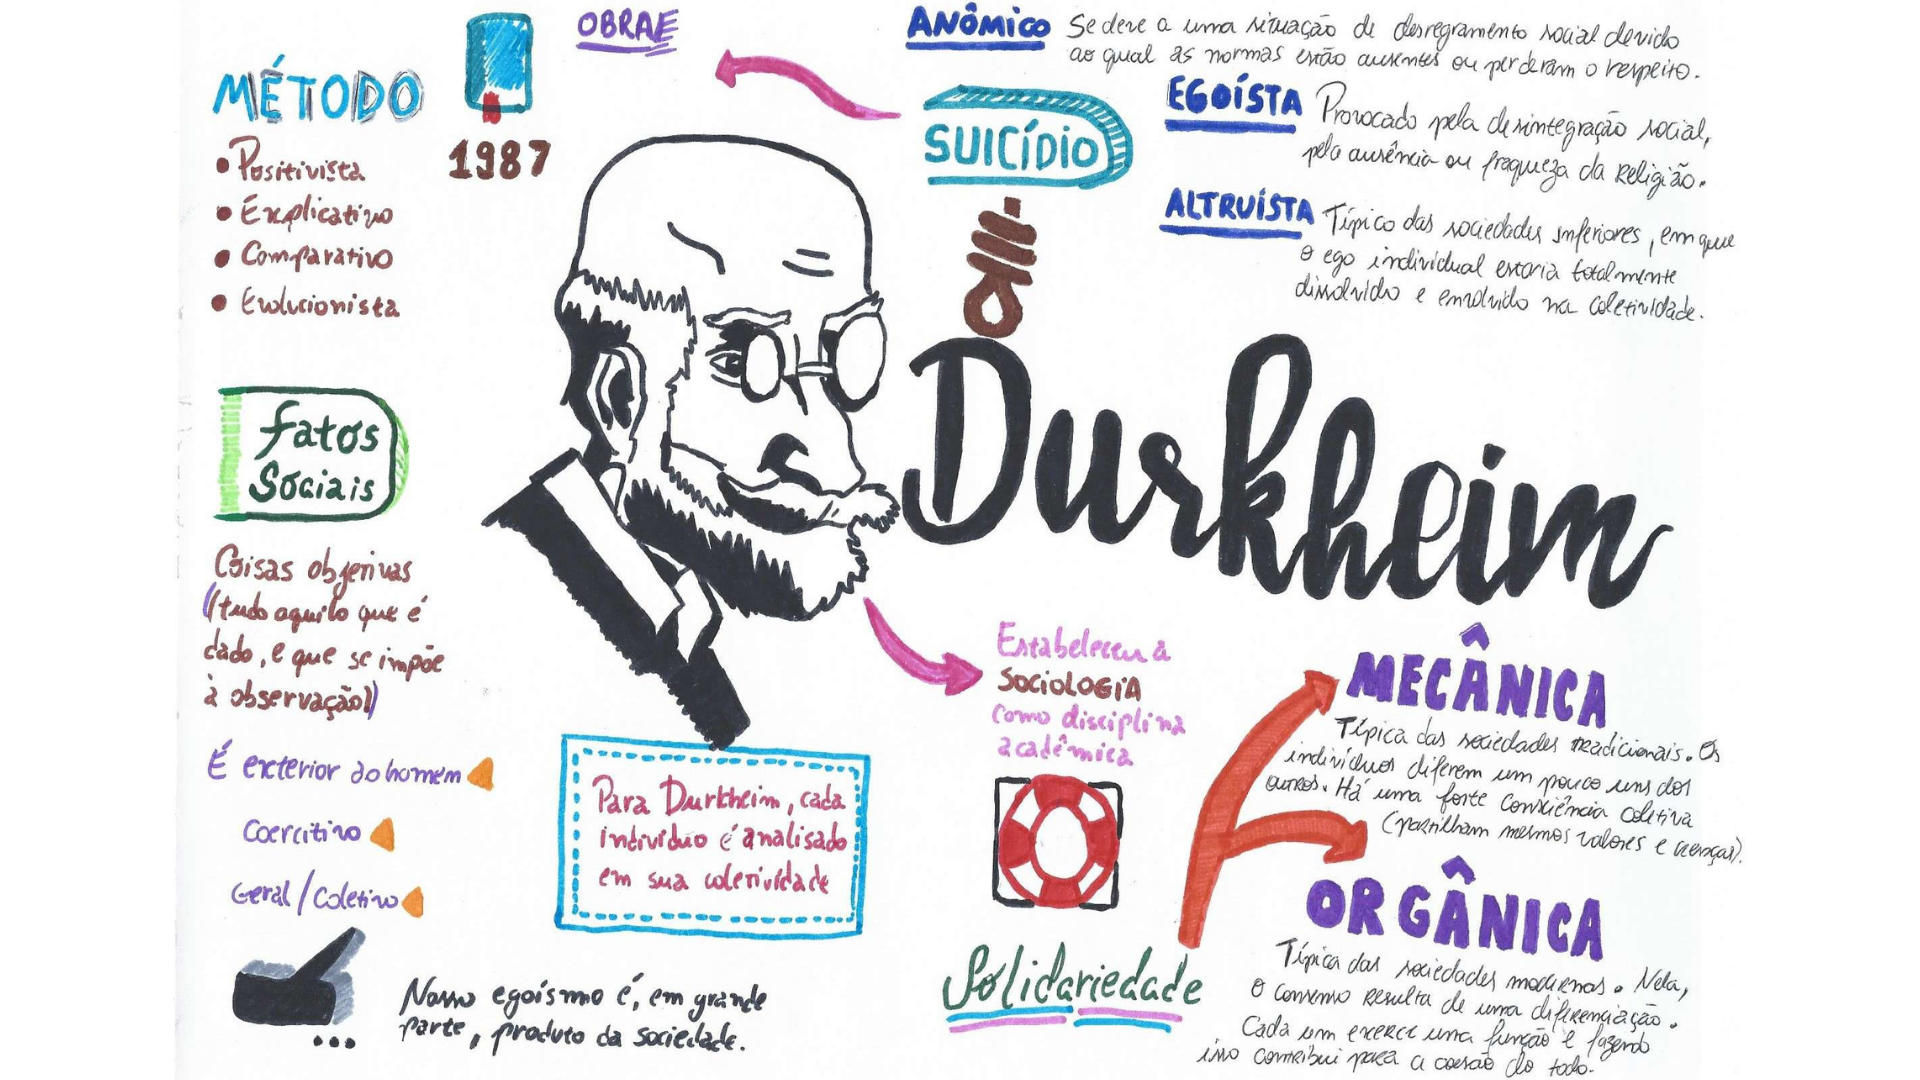 MÉTODO
• Positivista
• Explicativo
• Comparativo
• Evolucionista
OBRAE
1987
SUICÍDIO
ANÔMICO Se deve a uma situação de desregramento social devido
ao qual as normas estão ausentes ou perderam o respeito.
EGOÍSTA Provocado pela desintegração social,
pela ausência ou fraqueza da religião.
ALTRUÍSTA Típico das sociedades inferiores, em que
o ego individual estaria totalmente
dissolvido e envolvido na coletividade.
Durkheim
fatos
Sociais
Coisas objetivas
(tudo aquilo que é
dado, e que se impõe
à observação)
É exterior ao homem
Coercitivo
Geral/Coletivo
Nosso egoísmo é, em grande
parte, produto da sociedade.
...
Para Durkheim, cada
indivíduo é analisado
em sua coletividade
Estabeleceu a
SOCIOLOGIA
como disciplina
acadêmica
Solidariedade
MECÂNICA
Típica das sociedades tradicionais. Os
indivíduos diferem um pouco uns dos
outros. Há uma forte consciência coletiva
(partilham mesmos valores e crenças).
ORGÂNICA
Típica das sociedades modernas. Nela,
o consenso resulta de uma diferenciação.
Cada um exerce uma função e fazendo
isso contribui para a coesão do todo.